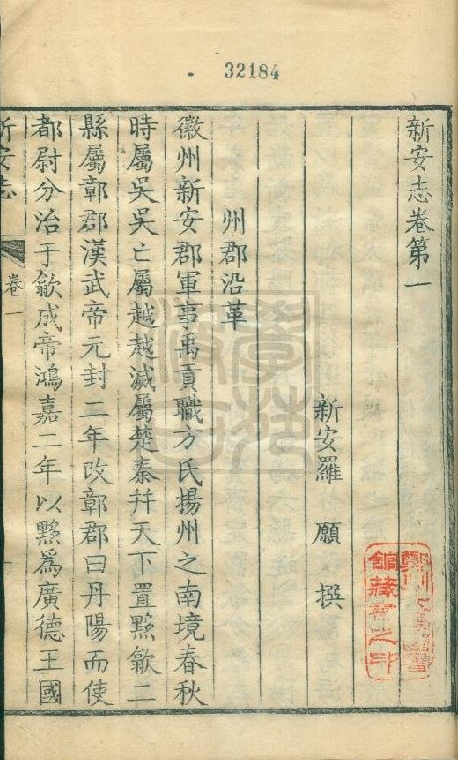 32184
新安志卷第一
新安羅願撰
州郡沿革
徽州新安郡軍事禹貢職方氏揚州之南境春秋
時屬吳吳亡屬越越滅屬楚秦并天下置黟歙二
縣屬鄣郡漢武帝元封二年改鄣郡曰丹陽而使
都尉分治于歙成帝鴻嘉二年以黟為廣德王國
新安志
卷一
館藏書之印